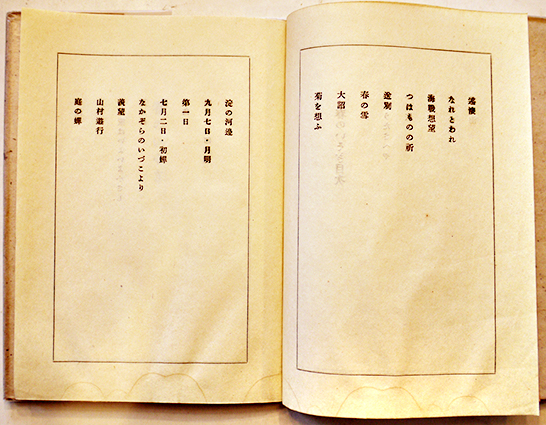 なれとわれ
海戰想望
つはものの祈
送別
春の雪
大詔
菊を想ふ
淀の河邊
九月七日・月明
第一日
七月二日・初蝉
なかぞらのいづこより
羨望
山村遊行
庭の蝉